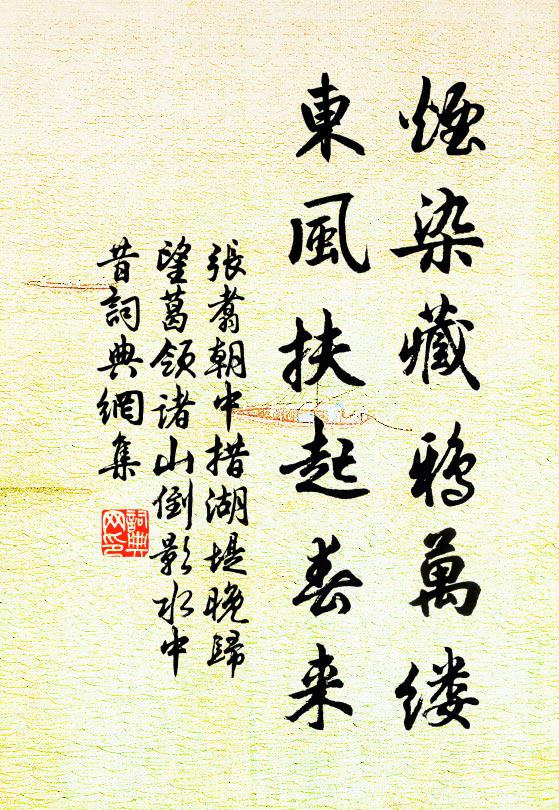 煙染藏鴉萬縷
東風扶起春来
張翥朝中措湖堤晚歸
望葛領諸山倒影水中
昔詞典網集
詞典网印